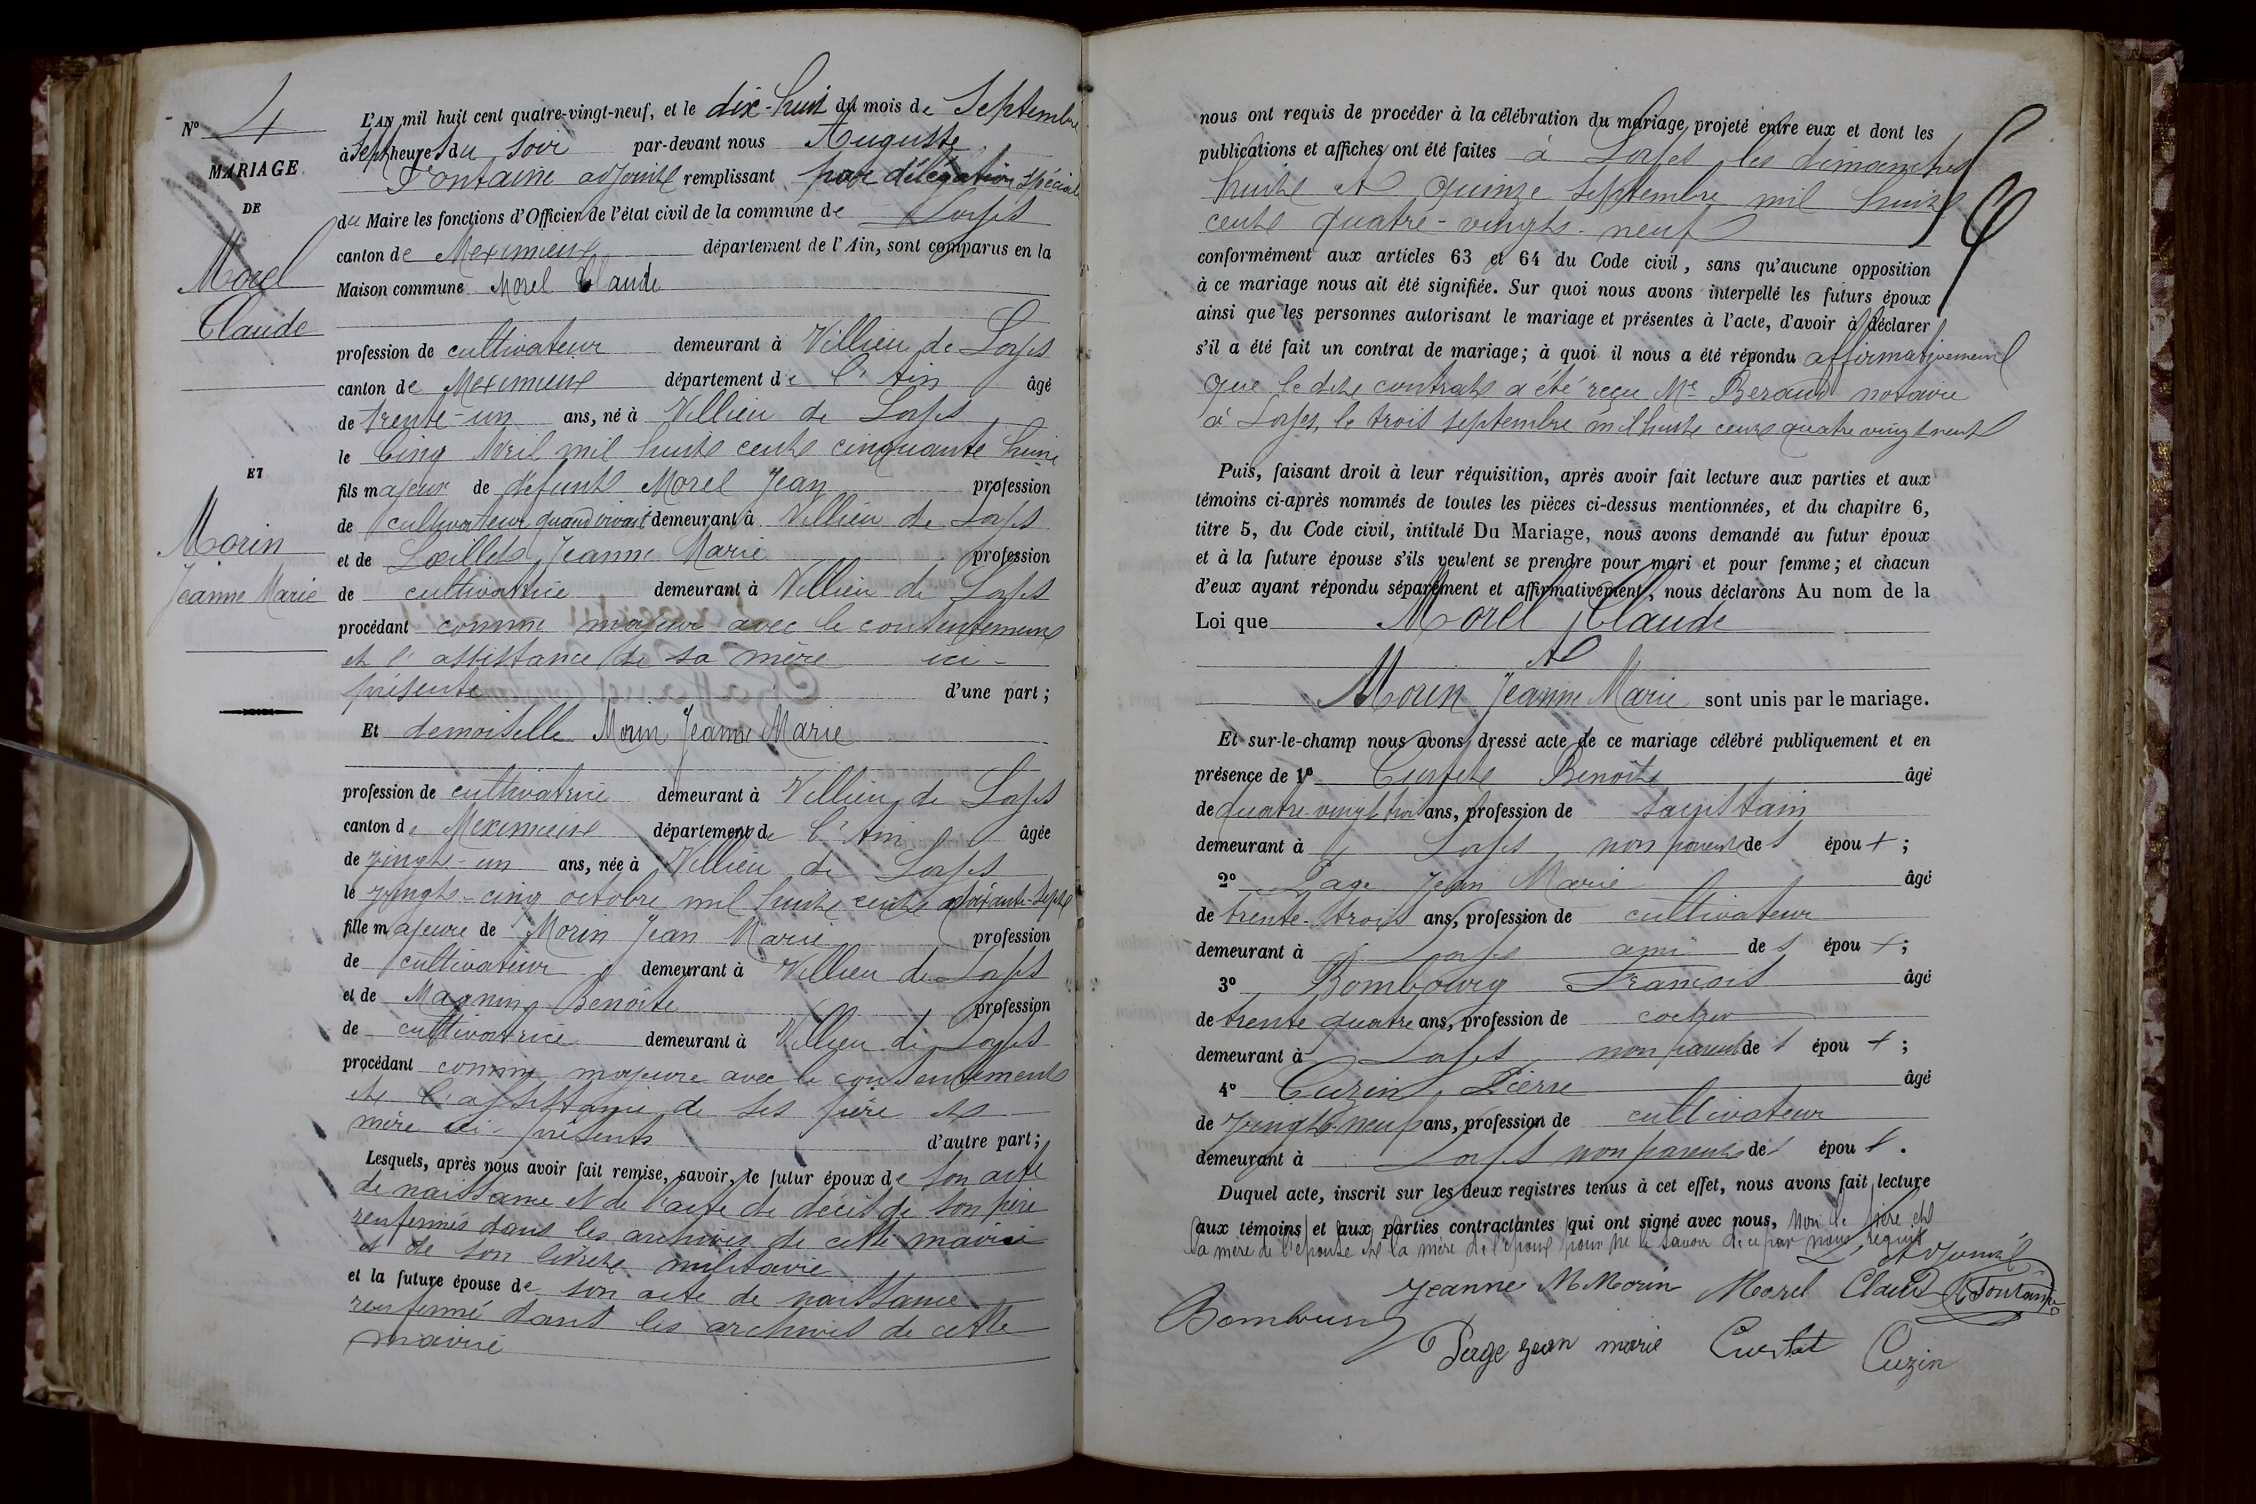 Nº 4
MARIAGE
DE
Morel
Claude
ET
Morin
Jeanne Marie
L'AN mil huit cent quatre-vingt-neuf, et le dix-huit du mois de Septembre
à sept heures du soir par-devant nous Auguste
Fontaine adjoint remplissant par délégation spéciale
du Maire les fonctions d'Officier de l'état civil de la commune de Loyes
canton de Meximieux département de l'Ain, sont comparus en la
Maison commune Morel Claude
profession de cultivateur demeurant à Villieu de Loyes
canton de Meximieux département de l'Ain âgé
de trente-un ans, né à Villieu de Loyes
le Cinq Avril mil huit cent cinquante huit
fils majeur de défunt Morel Jean profession
de cultivateur quand vivait demeurant à Villieu de Loyes
et de Lœillet Jeanne Marie profession
de cultivatrice demeurant à Villieu de Loyes
procédant comme majeur avec le consentement
et l'assistance de sa mère ici-
présente d'une part ;
Et demoiselle Morin Jeanne Marie
profession de cultivatrice demeurant à Villieu de Loyes
canton de Meximieux département de l'Ain âgée
de vingt-un ans, née à Villieu de Loyes
le vingt-cinq octobre mil huit cent soixante-sept
fille majeure de Morin Jean Marie profession
de cultivateur demeurant à Villieu de Loyes
et de Magnin Benoîte profession
de cultivatrice demeurant à Villieu de Loyes
procédant comme majeure avec le consentement
et l'assistance de ses père et
mère ici présents d'autre part ;
Lesquels, après nous avoir fait remise, savoir, le futur époux de son acte
de naissance et de l'acte de décès de son père
renfermés dans les archives de cette mairie
et de son livret militaire
et la future épouse de son acte de naissance
renfermé dans les archives de cette
mairie
nous ont requis de procéder à la célébration du mariage projeté entre eux et dont les
publications et affiches ont été faites à Loyes les dimanches
huit et quinze septembre mil huit
cent quatre-vingt-neuf
conformément aux articles 63 et 64 du Code civil, sans qu'aucune opposition
à ce mariage nous ait été signifiée. Sur quoi nous avons interpellé les futurs époux
ainsi que les personnes autorisant le mariage et présentes à l'acte, d'avoir à déclarer
s'il a été fait un contrat de mariage; à quoi il nous a été répondu affirmativement
que le dit contrat a été reçu Me Beraud notaire
à Loyes, le trois septembre mil huit cent quatre vingt neuf
Puis, faisant droit à leur réquisition, après avoir fait lecture aux parties et aux
témoins ci-après nommés de toutes les pièces ci-dessus mentionnées, et du chapitre 6,
titre 5, du Code civil, intitulé Du Mariage, nous avons demandé au futur époux
et à la future épouse s'ils veulent se prendre pour mari et pour femme; et chacun
d'eux ayant répondu séparément et affirmativement, nous déclarons Au nom de la
Loi que Morel Claude
et
Morin Jeanne Marie sont unis par le mariage.
Et sur-le-champ nous avons dressé acte de ce mariage célébré publiquement et en
présence de 1º Curtet Benoît âgé
de quatre-vingt trois ans, profession de sacristain
demeurant à Loyes non parent des époux ;
2º Page Jean Marie âgé
de trente-trois ans, profession de cultivateur
demeurant à Loyes ami des époux ;
3º Bombourg François âgé
de trente quatre ans, profession de cocher
demeurant à Loyes non parent des époux ;
4º Cuzin Pierre âgé
de vingt-neuf ans, profession de cultivateur
demeurant à Loyes non parent des époux.
Duquel acte, inscrit sur les deux registres tenus à cet effet, nous avons fait lecture
aux témoins et aux parties contractantes qui ont signé avec nous, non le père et
la mère de l'épouse et la mère de l'époux pour ne le savoir de ce par nous requis
L'Adjoint
Jeanne M Morin Morel Claude A Fontaine
Bombourg
Page jean marie Curtet Cuzin